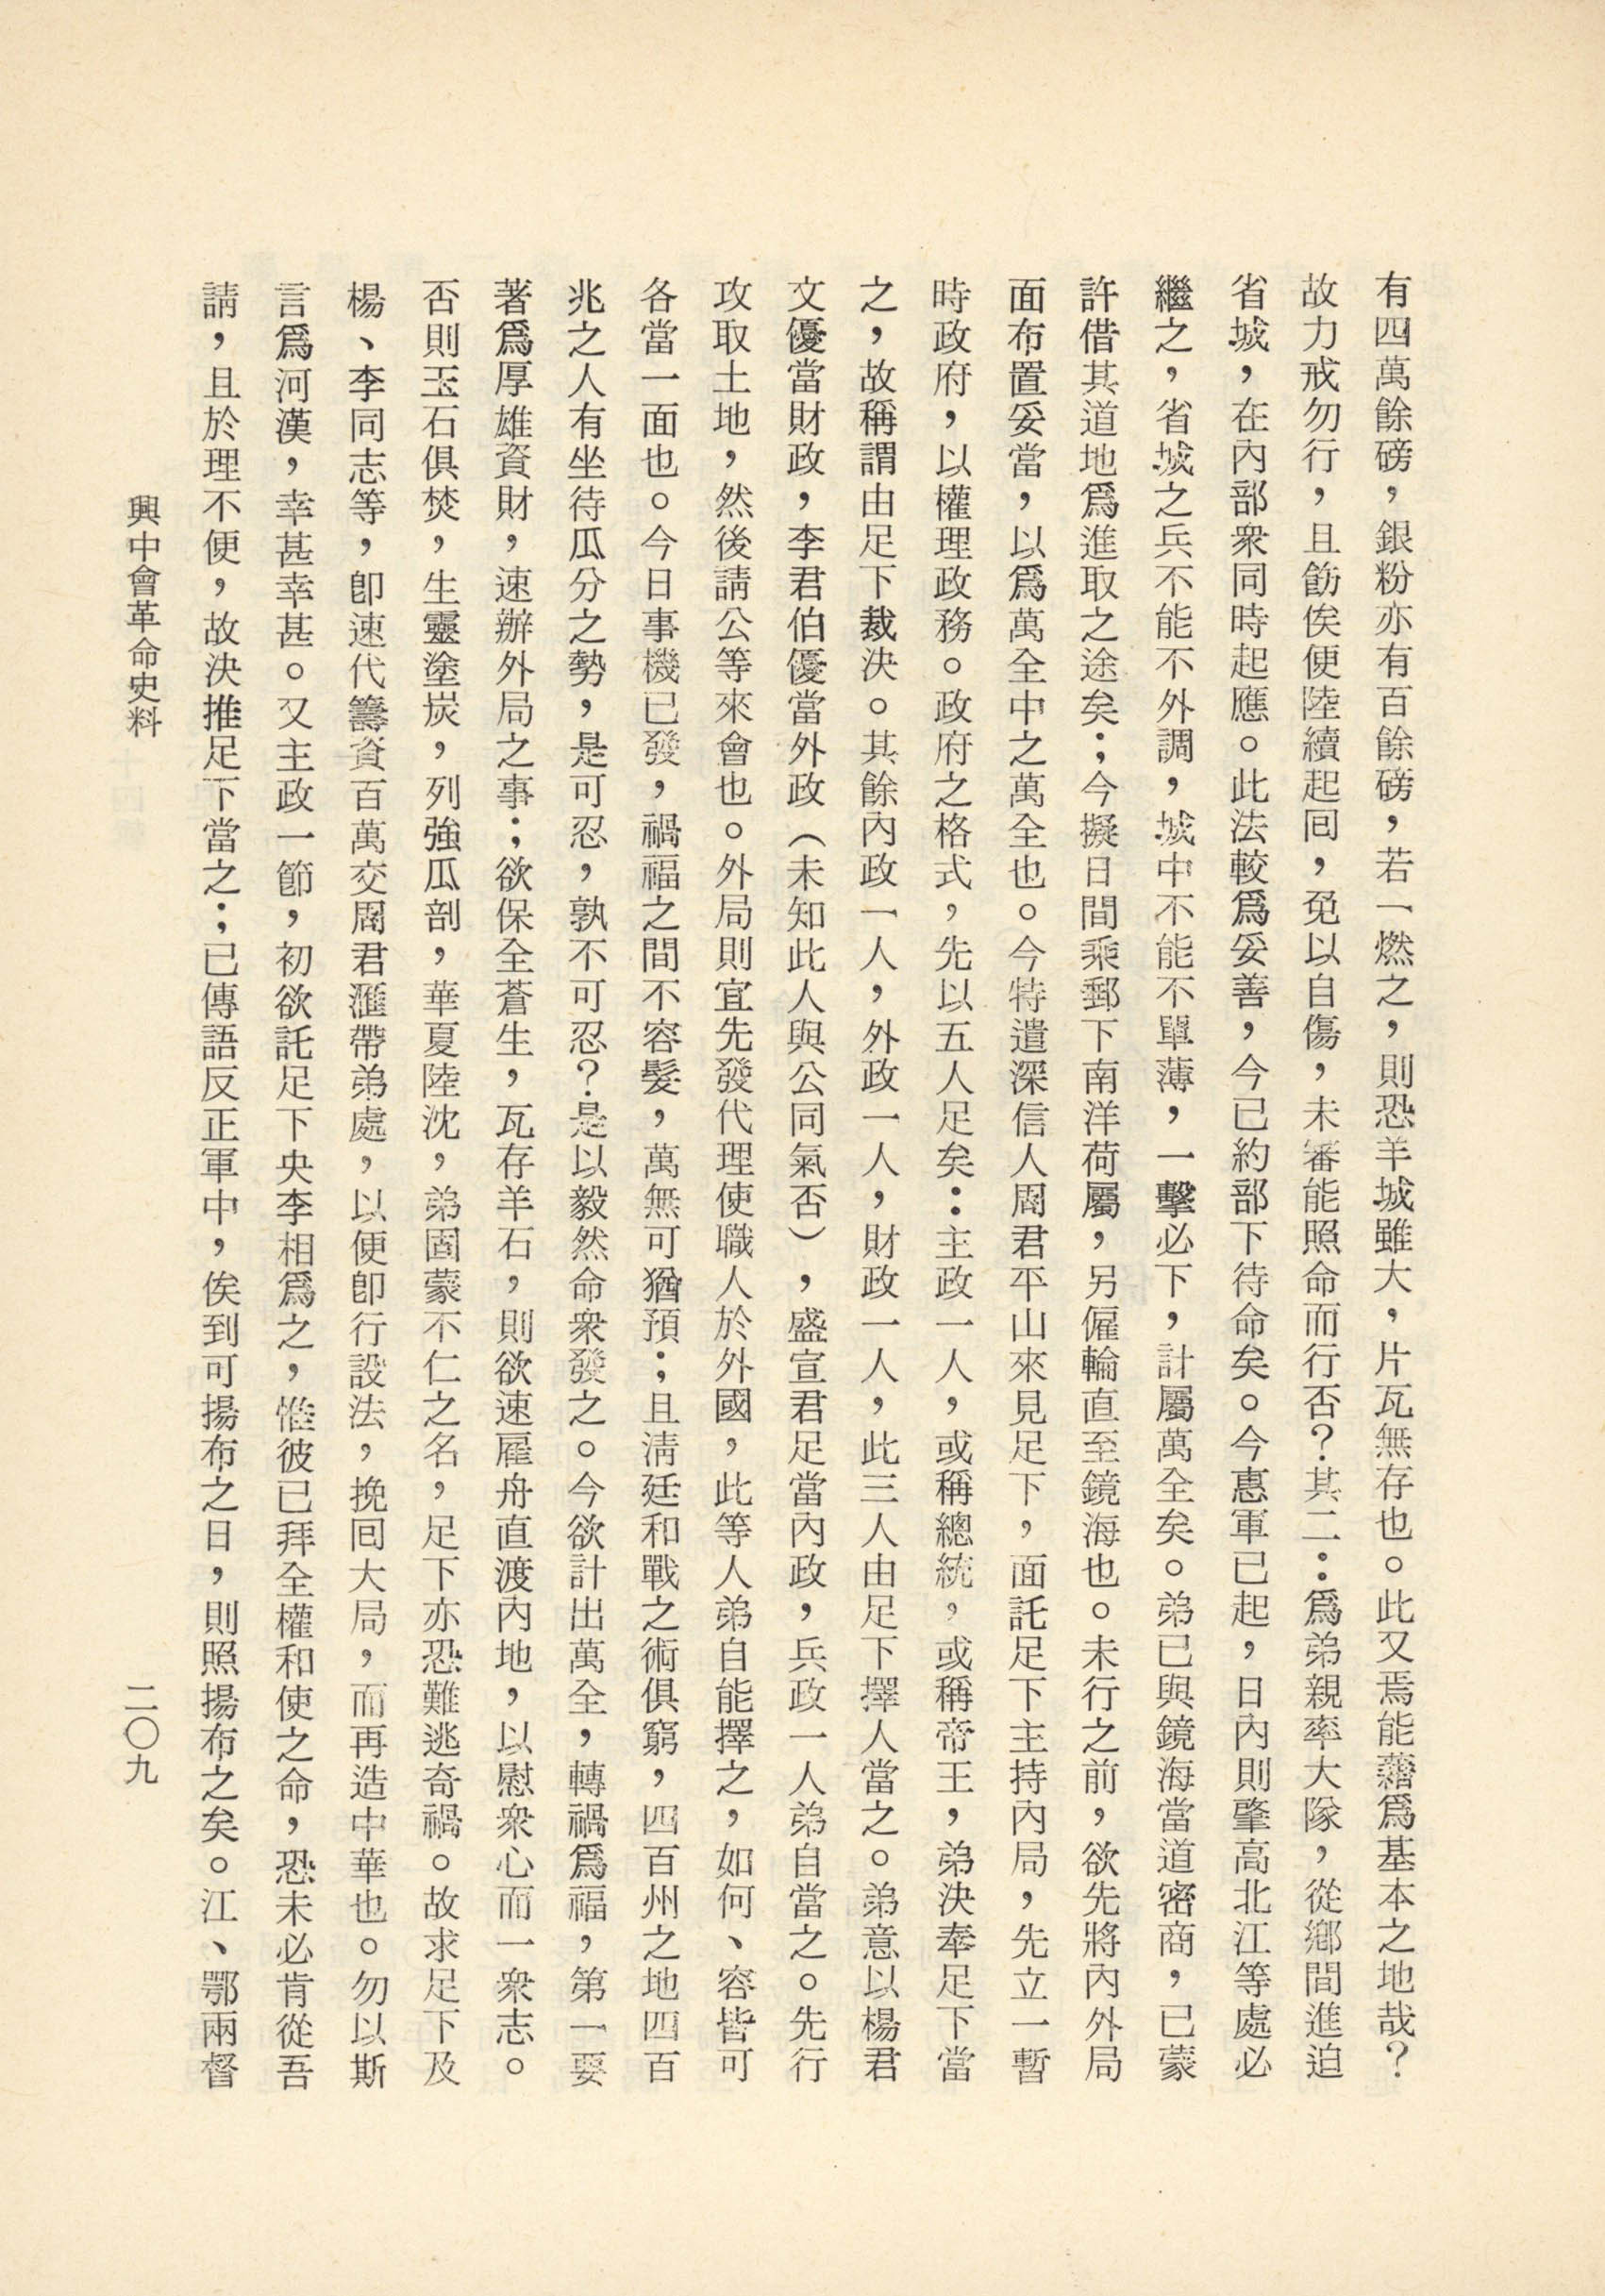 有四萬餘磅，銀粉亦有百餘磅，若一燃之，則恐羊城雖大，片瓦無存也。此又焉能藉爲基本之地哉？
故力戒勿行，且飭俟便陸續起回，免以自傷，未審能照命而行否？其二：爲弟親率大隊，從鄉間進迫
省城，在內部衆同時起應。此法較爲妥善，今已約部下待命矣。今惠軍已起，日內則肇高北江等處必
繼之，省城之兵不能不外調，城中不能不單薄，一擊必下，計屬萬全矣。弟已與鏡海當道密商，已蒙
許借其道地爲進取之途矣；今擬日間乘郵下南洋荷屬，另僱輪直至鏡海也。未行之前，欲先將內外局
面布置妥當，以爲萬全中之萬全也。今特遣深信人周君平山來見足下，面託足下主持內局，先立一暫
時政府，以權理政務。政府之格式，先以五人足矣：主政一人，或稱總統，或稱帝王，弟決奉足下當
之，故稱謂由足下裁決。其餘內政一人，外政一人，財政一人，此三人由足下擇人當之。弟意以楊君
文優當財政，李君伯優當外政（未知此人與公同氣否），盛宣君足當內政，兵政一人弟自當之。先行
攻取土地，然後請公等來會也。外局則宜先發代理使職人於外國，此等人弟自能擇之，如何、容皆可
各當一面也。今日事機已發，禍福之間不容髮，萬無可猶預；且清廷和戰之術俱窮，四百州之地四百
兆之人有坐待瓜分之勢，是可忍，孰不可忍？是以毅然命衆發之。今欲計出萬全，轉禍爲福，第一要
著爲厚雄資財，速辦外局之事；欲保全蒼生，瓦存羊石，則欲速雇舟直渡內地，以慰衆心而一衆志。
否則玉石俱焚，生靈塗炭，列強瓜剖，華夏陸沈，弟固蒙不仁之名，足下亦恐難逃奇禍。故求足下及
楊、李同志等，卽速代籌資百萬交周君滙帶弟處，以便卽行設法，挽回大局，而再造中華也。勿以斯
言爲河漢，幸甚幸甚。又主政一節，初欲託足下央李相爲之，惟彼已拜全權和使之命，恐未必肯從吾
請，且於理不便，故決推足下當之；已傳語反正軍中，俟到可揚布之日，則照揚布之矣。江、鄂兩督
興中會革命史料
二〇九